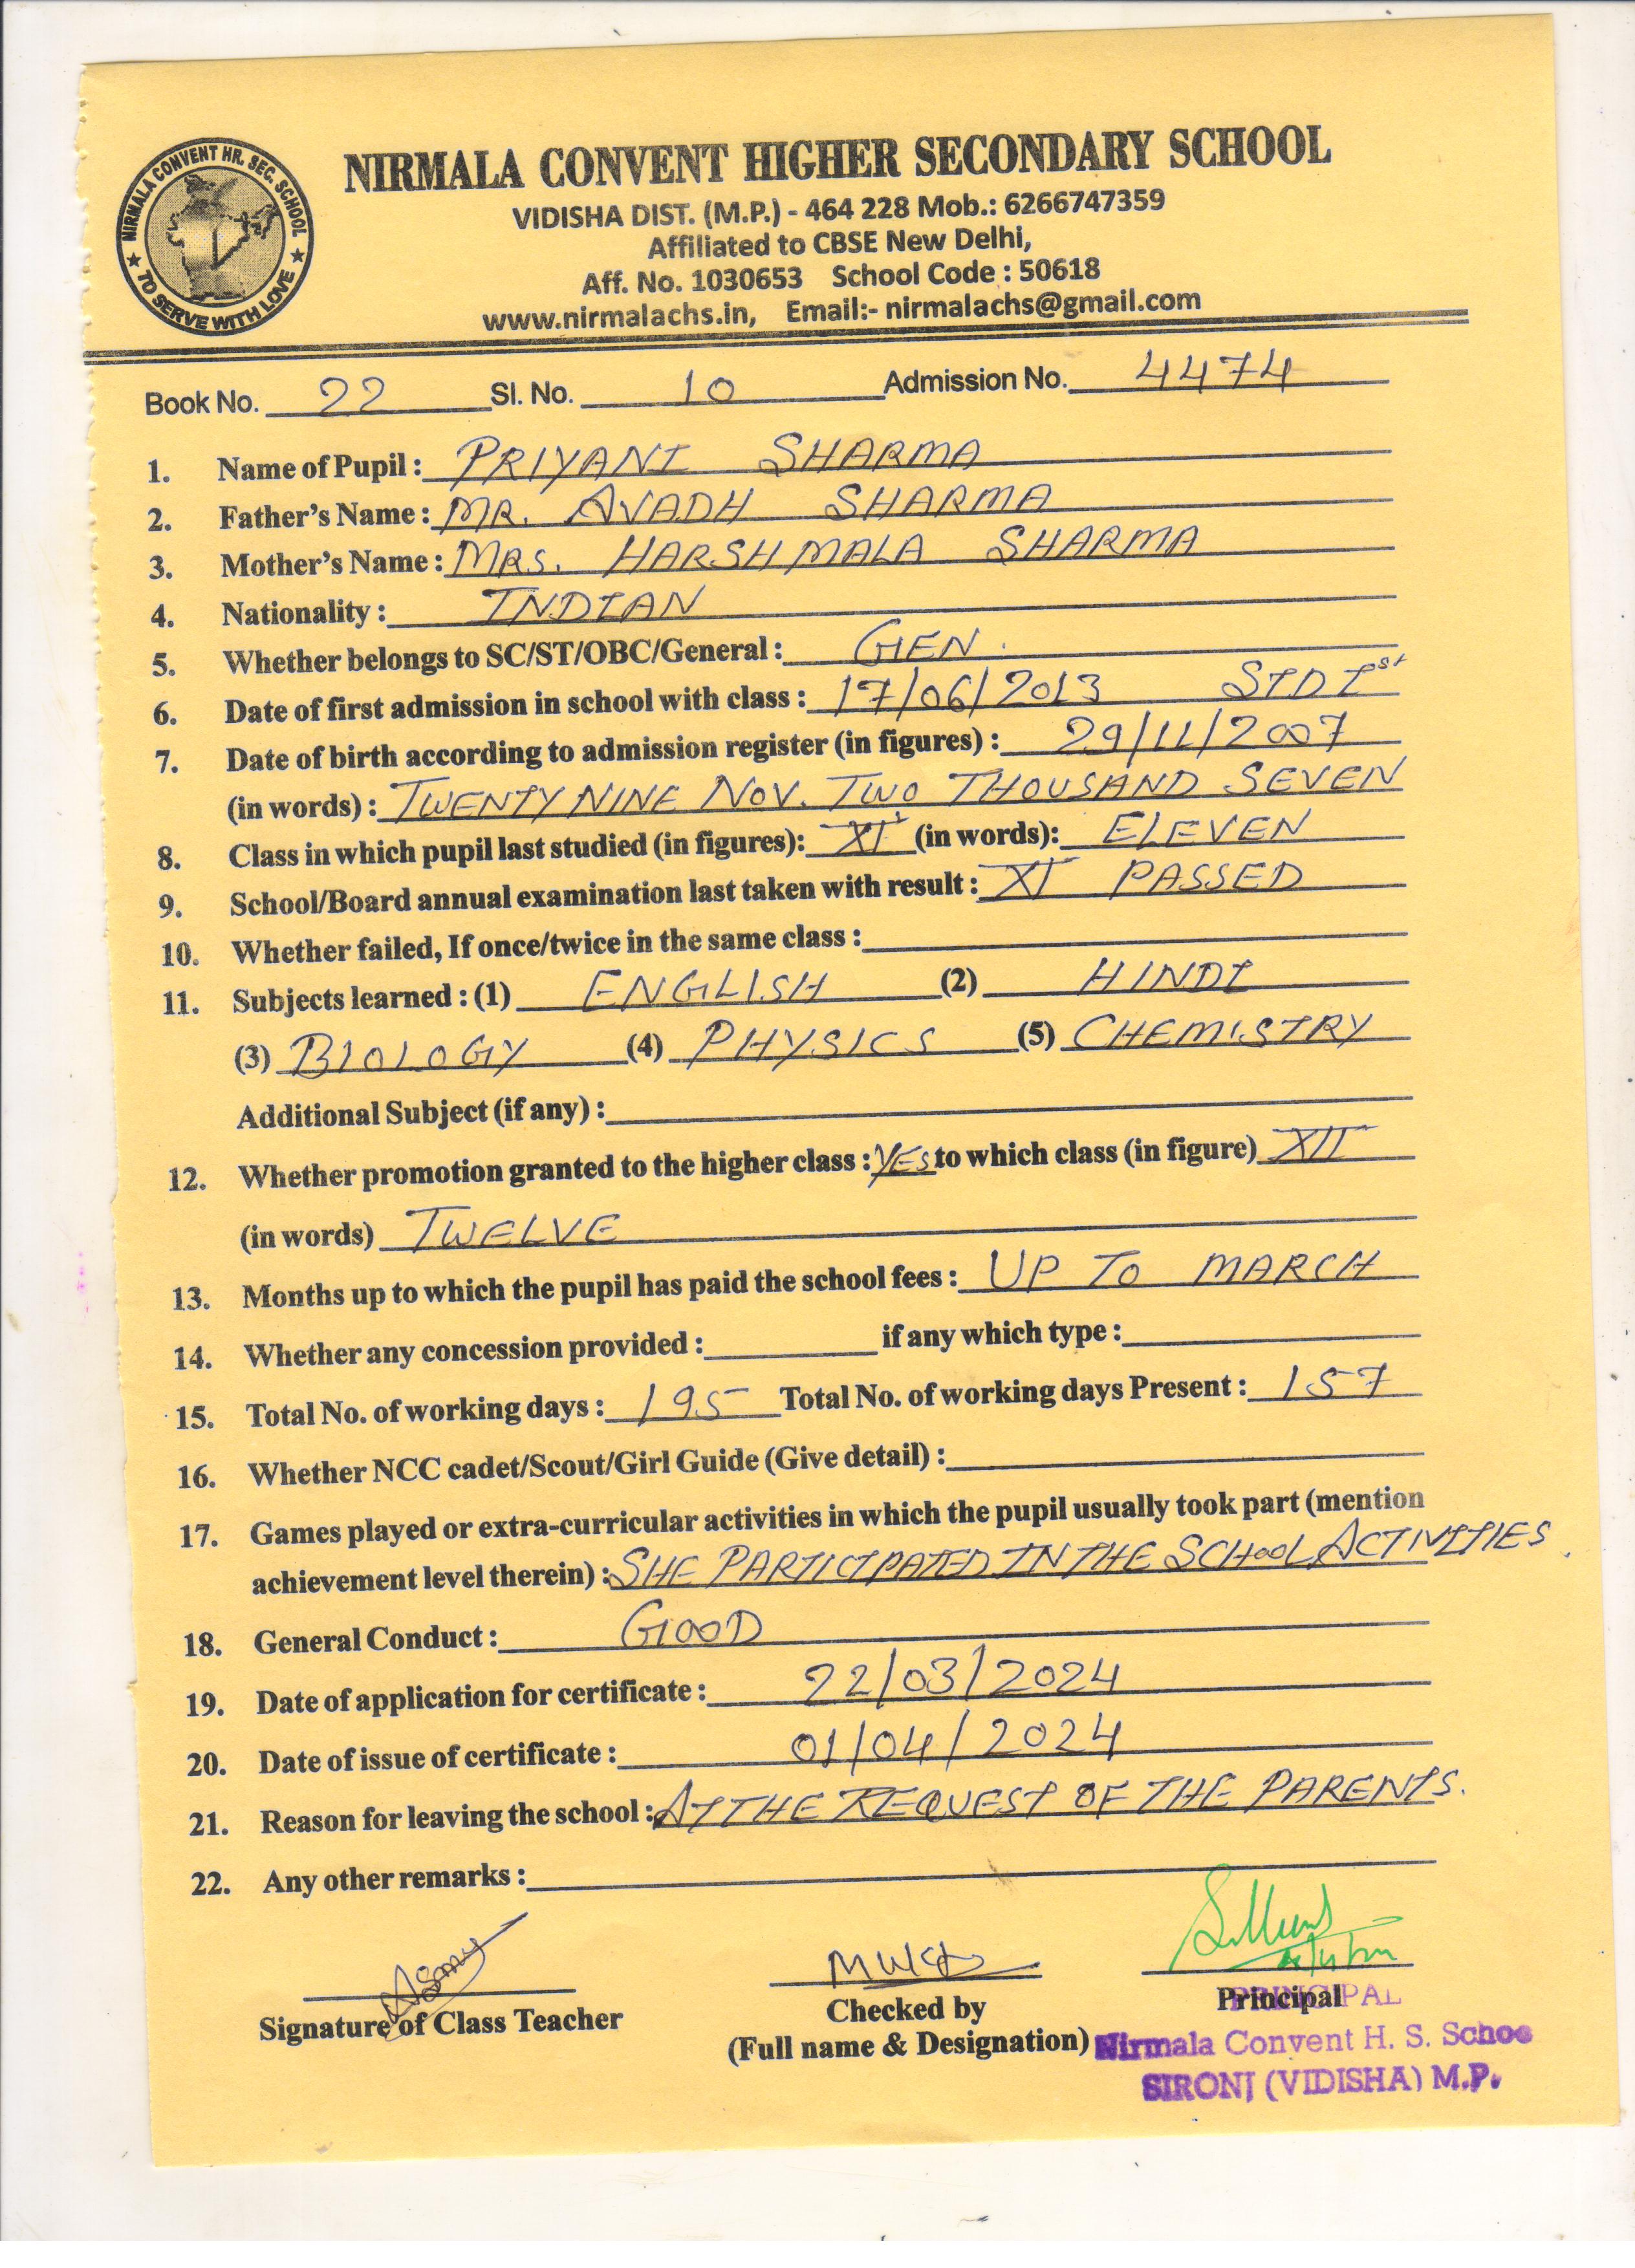 NIRMALA CONVENT HR. SEC. SCHOOL
★ TO SERVE WITH LOVE ★
NIRMALA CONVENT HIGHER SECONDARY SCHOOL
VIDISHA DIST. (M.P.) - 464 228 Mob.: 6266747359
Affiliated to CBSE New Delhi,
Aff. No. 1030653 School Code : 50618
www.nirmalachs.in, Email:- nirmalachs@gmail.com
Book No. 22 Sl. No. 10 Admission No. 4474
1. Name of Pupil : PRIYANI SHARMA
2. Father's Name : MR. AVADH SHARMA
3. Mother's Name : MRS. HARSHMALA SHARMA
4. Nationality : INDIAN
5. Whether belongs to SC/ST/OBC/General : GEN.
6. Date of first admission in school with class : 17/06/2013 STD Ist
7. Date of birth according to admission register (in figures) : 29/11/2007
(in words) : TWENTY NINE NOV. TWO THOUSAND SEVEN
8. Class in which pupil last studied (in figures): XI (in words): ELEVEN
9. School/Board annual examination last taken with result : XI PASSED
10. Whether failed, If once/twice in the same class :
11. Subjects learned : (1) ENGLISH (2) HINDI
(3) BIOLOGY (4) PHYSICS (5) CHEMISTRY
Additional Subject (if any) :
12. Whether promotion granted to the higher class : YES to which class (in figure) XII
(in words) TWELVE
13. Months up to which the pupil has paid the school fees : UP TO MARCH
14. Whether any concession provided : if any which type :
15. Total No. of working days : 195 Total No. of working days Present : 157
16. Whether NCC cadet/Scout/Girl Guide (Give detail) :
17. Games played or extra-curricular activities in which the pupil usually took part (mention
achievement level therein) : SHE PARTICIPATED IN THE SCHOOL ACTIVITIES.
18. General Conduct : GOOD
19. Date of application for certificate : 22/03/2024
20. Date of issue of certificate : 01/04/2024
21. Reason for leaving the school : AT THE REQUEST OF THE PARENTS.
22. Any other remarks :
Signature of Class Teacher
Checked by
(Full name & Designation)
Principal
PRINCIPAL
Nirmala Convent H. S. Schoo
SIRONJ (VIDISHA) M.P.